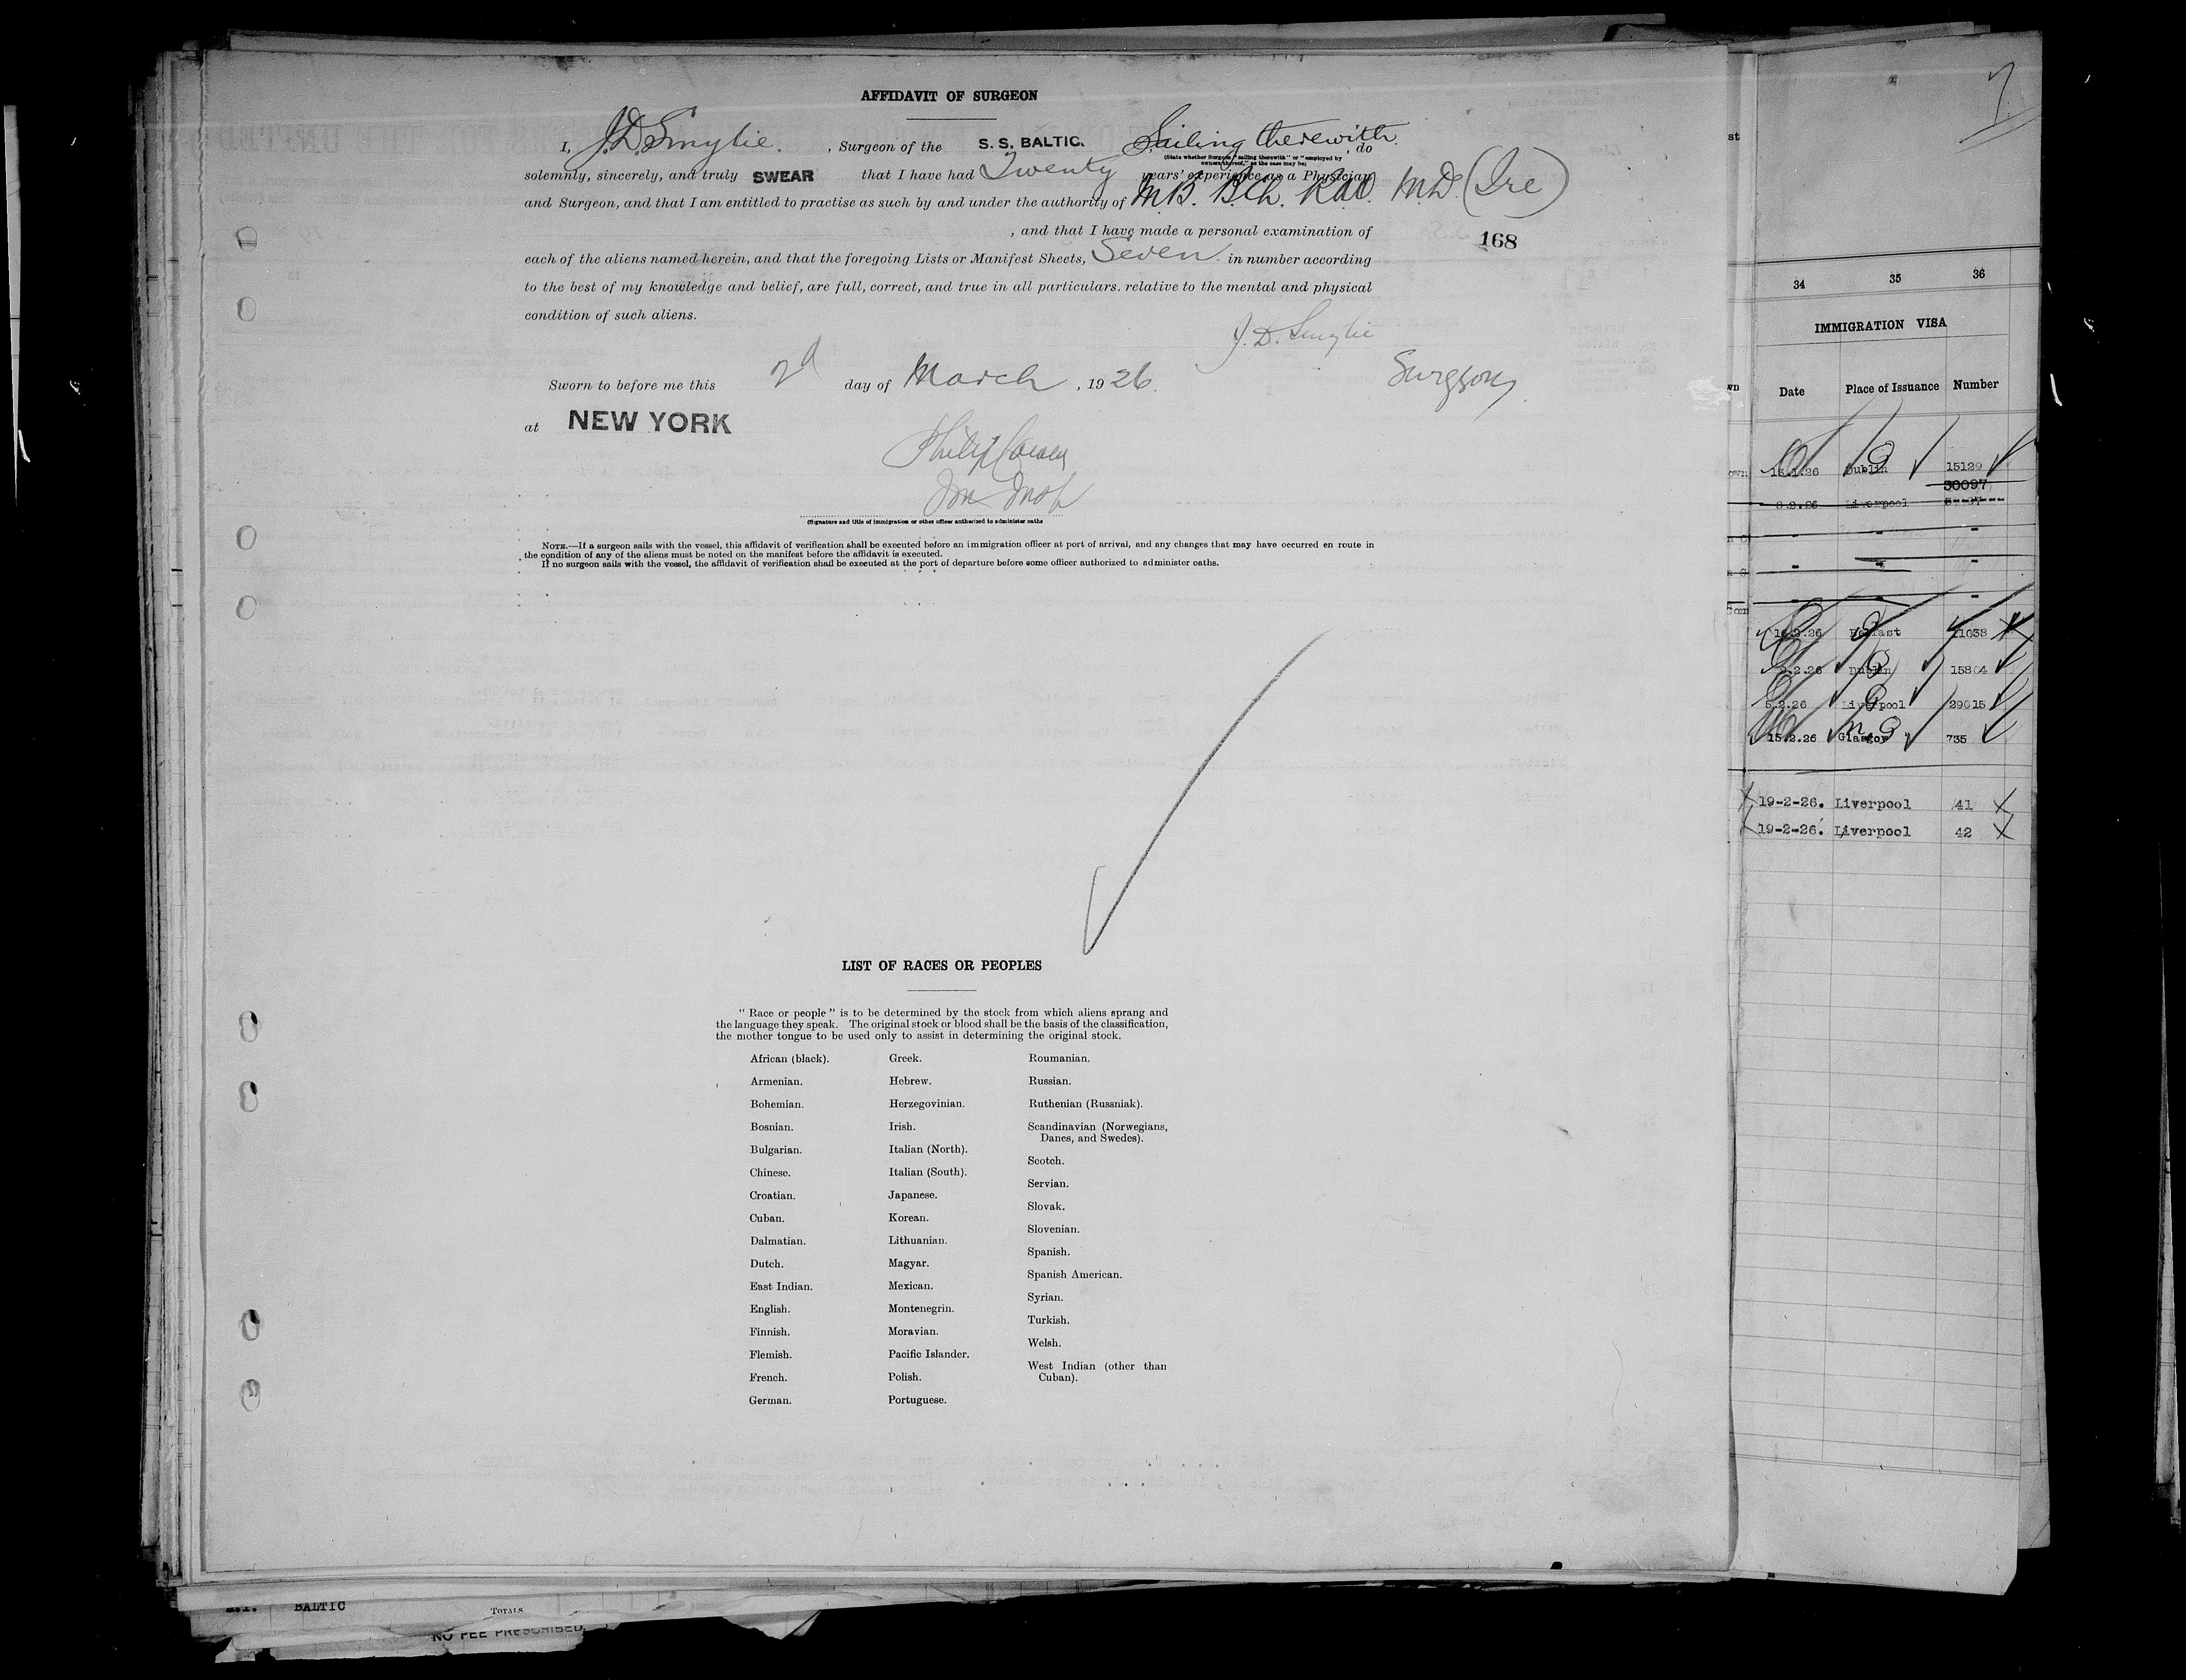 AFFIDAVIT OF SURGEON
I, J.D. Smylie. , Surgeon of the S. S. BALTIC. Sailing therewith. , do
(State whether Surgeon "sailing therewith" or "employed by
owners thereof," as the case may be)
solemnly, sincerely, and truly SWEAR that I have had Twenty years' experience as a Physician
and Surgeon, and that I am entitled to practise as such by and under the authority of M.B. B.Ch. M.D. (Ire)
, and that I have made a personal examination of
168
each of the aliens named herein, and that the foregoing Lists or Manifest Sheets, Seven in number according
to the best of my knowledge and belief, are full, correct, and true in all particulars. relative to the mental and physical
condition of such aliens.
J. D. Smylie
Surgeon,
Sworn to before me this 2d day of March , 1926.
at NEW YORK
Philip Cowen
Imm Insp
(Signature and title of immigration or other officer authorized to administer oaths
NOTE.—If a surgeon sails with the vessel, this affidavit of verification shall be executed before an immigration officer at port of arrival, and any changes that may have occurred en route in
the condition of any of the aliens must be noted on the manifest before the affidavit is executed.
If no surgeon sails with the vessel, the affidavit of verification shall be executed at the port of departure before some officer authorized to administer oaths.
LIST OF RACES OR PEOPLES
" Race or people " is to be determined by the stock from which aliens sprang and
the language they speak. The original stock or blood shall be the basis of the classification,
the mother tongue to be used only to assist in determining the original stock.
African (black).
Armenian.
Bohemian.
Bosnian.
Bulgarian.
Chinese.
Croatian.
Cuban.
Dalmatian.
Dutch.
East Indian.
English.
Finnish.
Flemish.
French.
German.
Greek.
Hebrew.
Herzegovinian.
Irish.
Italian (North).
Italian (South).
Japanese.
Korean.
Lithuanian.
Magyar.
Mexican.
Montenegrin.
Moravian.
Pacific Islander.
Polish.
Portuguese.
Roumanian.
Russian.
Ruthenian (Russniak).
Scandinavian (Norwegians,
Danes, and Swedes).
Scotch.
Servian.
Slovak.
Slovenian.
Spanish.
Spanish American.
Syrian.
Turkish.
Welsh.
West Indian (other than
Cuban).
34 35 36
IMMIGRATION VISA
Date Place of Issuance Number
Dublin 15129
30097
8.2.26 Liverpool
Belfast 21038
Dublin 15804
5.2.26 Liverpool 29015
15.2.26 Glasgow 735
19-2-26. Liverpool 41
19-2-26. Liverpool 42
BALTIC TOTALS
NO FEE PRESCRIBED.